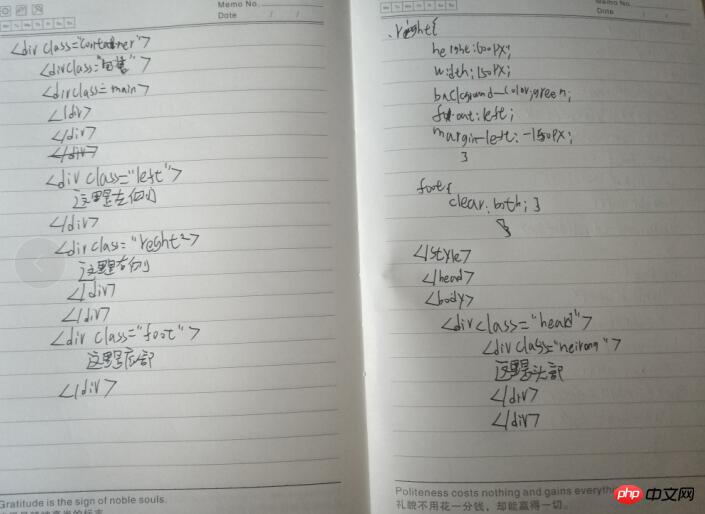 Memo No.
Date / /
<div class="container">
<div class="
<div class=main>
</div>
</div>
</div>
<div class="left">
这里是左侧
</div>
<div class="reght">
这里右侧
</div>
</div>
<div class="foot">
这里是底部
</div>
Gratitude is the sign of noble souls.
Memo No.
Date / /
.reght{
height:600px;
width:150px;
background-color:green;
float:left;
margin-left:-150px;
}
foot{
clear:both;}
}
</style>
</head>
<body>
<div class="head">
<div class="neirong">
这里是头部
</div>
</div>
Politeness costs nothing and gains everything
礼貌不用花一分钱，却能赢得一切。
php 中文网